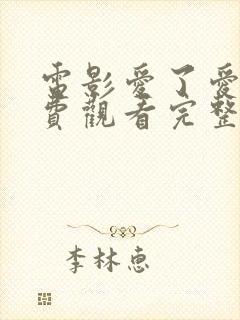 電影愛了愛
費觀看完整
李林惠